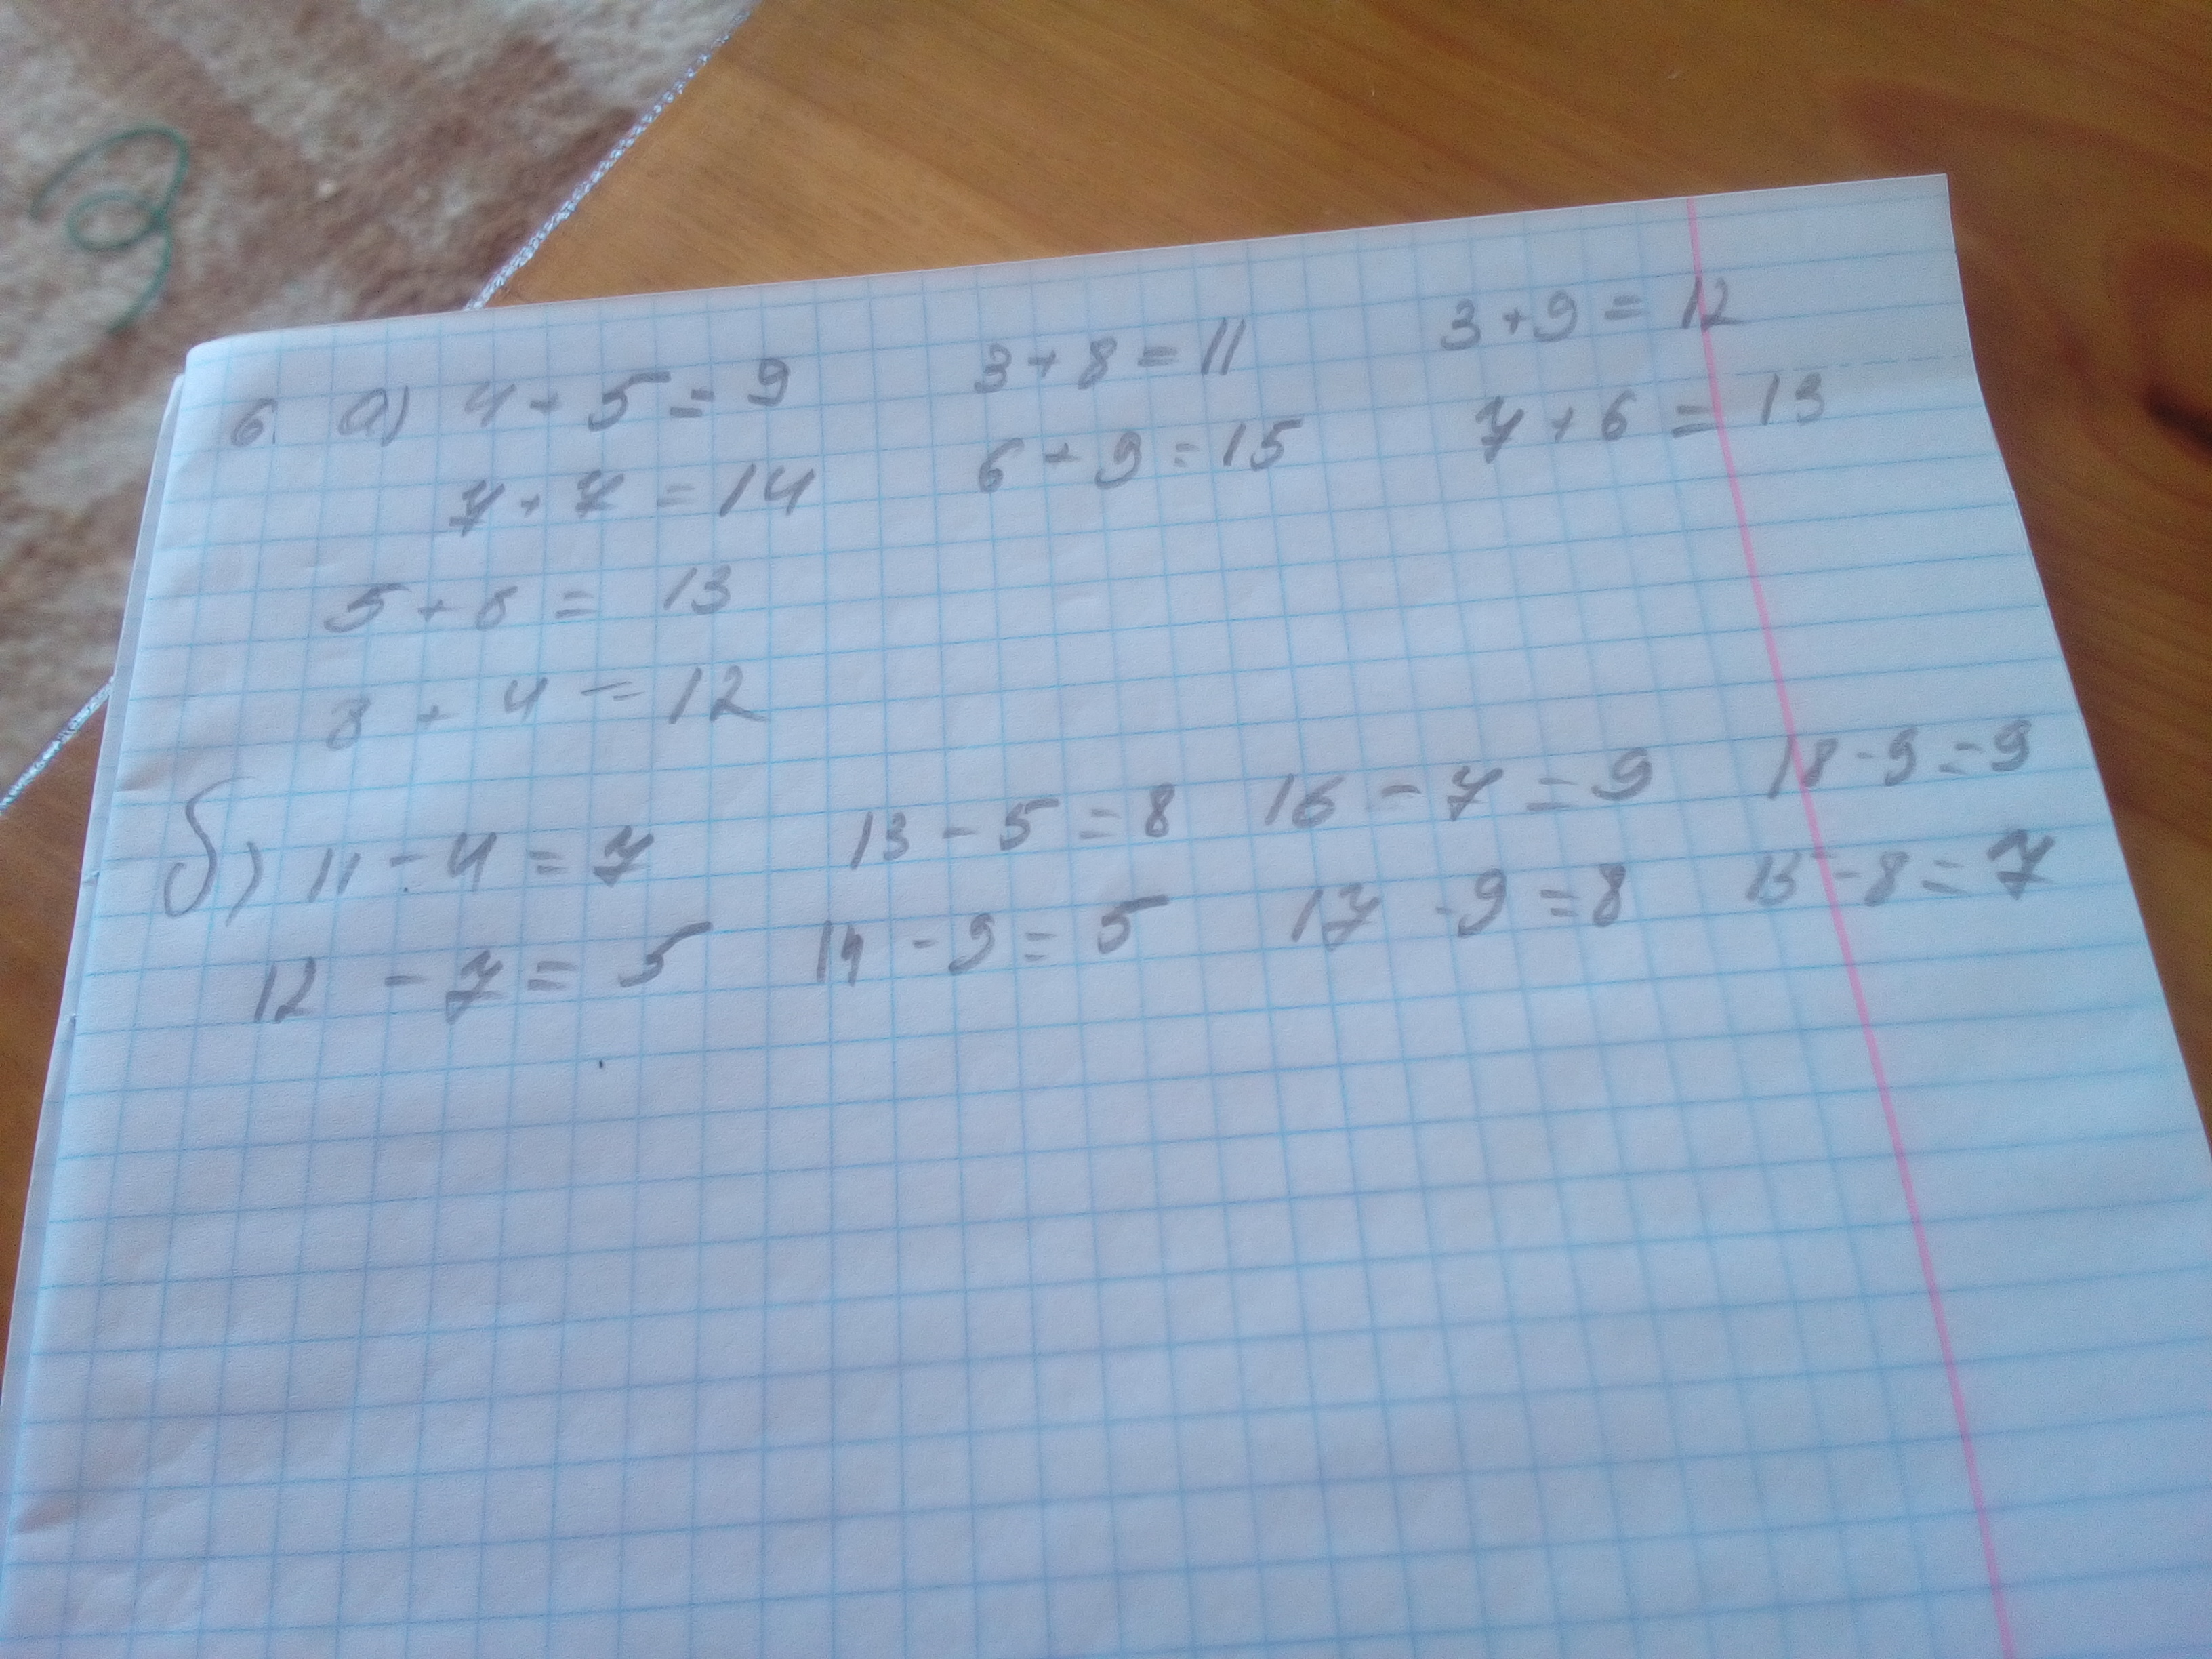 6. а) 4 + 5 = 9 3 + 8 = 11 3 + 9 = 12
7 + 7 = 14 6 + 9 = 15 7 + 6 = 13
5 + 8 = 13
8 + 4 = 12
б) 11 - 4 = 7 13 - 5 = 8 16 - 7 = 9 18 - 9 = 9
12 - 7 = 5 14 - 9 = 5 17 - 9 = 8 15 - 8 = 7